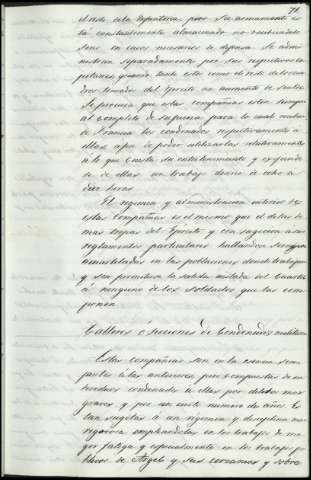 78
el resto de la Infanteria pero su armamento es
tá constantemente almacenado no recibiendolo
sino en casos necesarios de defensa. Se admi-
nistran separadamente por sus respectivos ca
pitanes gozando tanto estos como el resto de los cua
dros tomados del Ejercito un aumento de sueldo.
Se procura que estas compañias esten siempre
al completo de su fuerza para lo cual envian
de Francia los condenados respectivamente á
ellas, afin de poder utilizarlas relativamente
á lo que cuesta su entretenimiento y exigiendo
se de ellas un trabajo diario de ocho a
diez horas
El regimen y administracion interior de
estas compañias es el mismo que el de las de
mas tropas del Ejercito y con sugecion á sus
reglamentos particulares hallandose siempre
acuarteladas en las poblaciones donde trabajan
y sin permitirse la salida aislada del Cuartel
á ninguno de los soldados que las com
ponen
Talleres ó secciones de Condenados militares
Estas compañias son en la esencia seme
jantes á las anteriores, pero compuestas de in
dividuos condenados á ellas por delitos mas
graves y por un cierto numero de años. Es
tan sugetas á un regimen y disciplina mas
rigorosa empleandolas en los trabajos de ma
yor fatiga y especialmente en los trabajos pu
blicos de Argel y sus cercanias y sobre